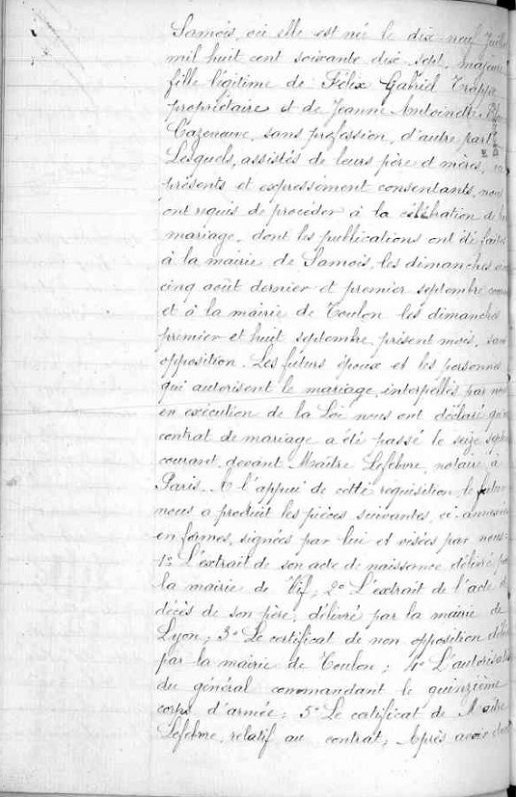 Samois, où elle est née le dix-neuf Juillet
mil huit cent soixante dix-sept, majeure
fille légitime de Félix Gabriel Trappe
propriétaire et de Jeanne Antoinette
Cazenave, sans profession, d'autre part
Lesquels, assistés de leurs père et mères,
présents et expressément consentants, nous
ont requis de procéder à la célébration de
mariage, dont les publications ont été faites
à la mairie de Samois, les dimanches
cinq août dernier et premier septembre
et à la mairie de Toulon les dimanches
premier et huit septembre, présent mois, sans
opposition. Les futurs époux et les personnes
qui autorisent le mariage, interpellés par nous
en exécution de la Loi nous ont déclaré qu'un
contrat de mariage a été passé le seize
courant, devant Maître Lefebvre, notaire à
Paris. A l'appui de cette réquisition, le futur
nous a produit les pièces suivantes, ci-annexées
en formes, signées par lui et visées par nous:
1º L'extrait de son acte de naissance délivré par
la mairie de Vif; 2º L'extrait de l'acte de
décès de son père, délivré par la mairie de
Lyon; 3º Le certificat de non opposition
par la mairie de Toulon; 4º L'autorisation
du général commandant le quinzième
corps d'armée; 5º Le certificat de Maître
Lefebvre, relatif au contrat; Après avoir